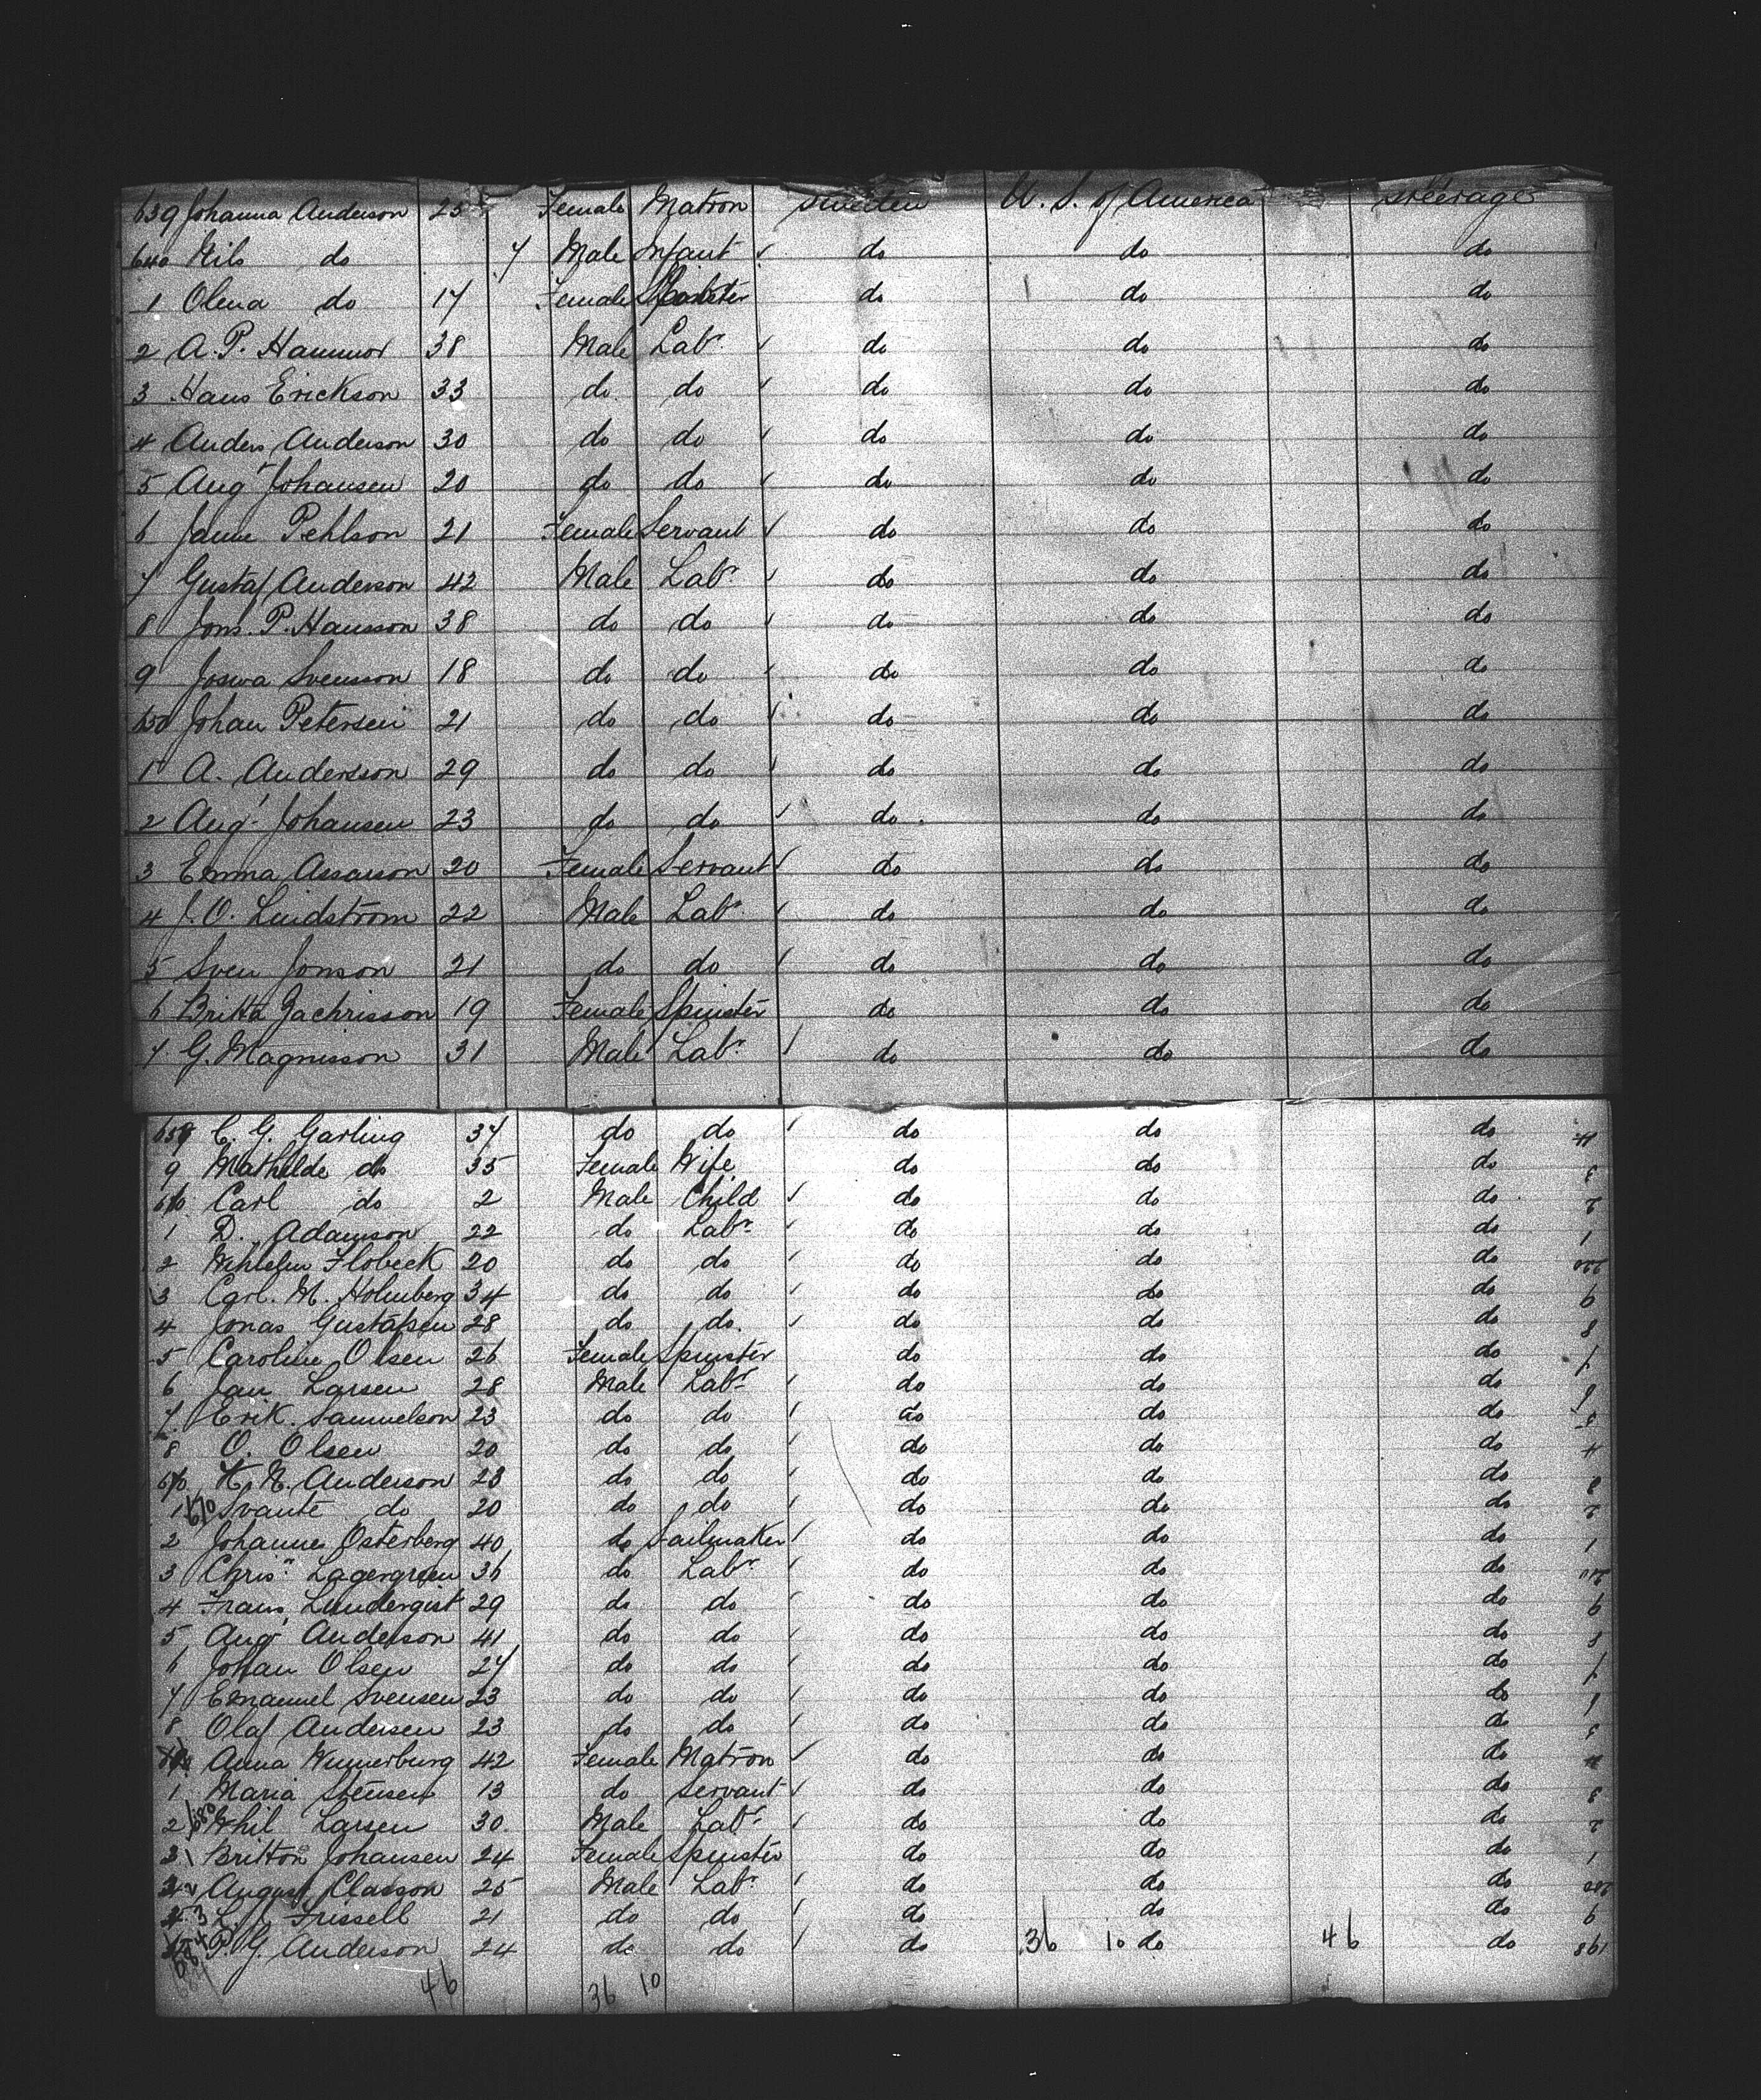 639 Johanna Anderson 25 Female Matron Sweden U. S. of America Steerage
640 Nils do 7 Male Infant do do do
1 Olena do 17 Female Spinster do do do
2 A. P. Hammor 38 Male Labr do do do
3 Hans Erickson 33 do do do do do
4 Anders Anderson 30 do do do do do
5 Augt Johansen 20 do do do do do
6 Janne Pehlson 21 Female Servant do do do
7 Gustaf Anderson 42 Male Labr do do do
8 Jons. P. Hansson 38 do do do do do
9 Joswa Svensson 18 do do do do do
650 Johan Petersen 21 do do do do do
1 A. Andersson 29 do do do do do
2 Aug. Johansen 23 do do do do do
3 Emma Assarson 20 Female Servant do do do
4 J. O. Lindstrom 22 Male Labr do do do
5 Sven Jonson 21 do do do do do
6 Britta Zachrisson 19 Female Spinster do do do
7 G. Magnisson 31 Male Labr do do do
658 C. G. Garling 37 do do do do do
9 Mathilde do 35 Female Wife do do do 3
660 Carl do 2 Male Child do do do 2
1 D. Adamson 22 do Labr do do do 1
2 Flobeck 20 do do do do do
3 Carl. M. Holmberg 34 do do do do do 9
4 Jonas Gustafsen 28 do do do do do 8
5 Caroline Olsen 26 Female Spinster do do do 7
6 Jan Larsen 28 Male Labr do do do 6
7 Erik. Samuelson 23 do do do do do 5
8 O. Olsen 20 do do do do do 4
Anderson 23 do do do do do 3
1 670 Svante do 20 do do do do do 2
2 Johannes Osterberg 40 do Sailmaker do do do 1
3 Chris" Lagergreen 36 do Labr do do do
4 Frans Lundergist 29 do do do do do 9
5 Aug Anderson 41 do do do do do 8
6 Johan Olsen 27 do do do do do 7
7 Emanuel Svensen 23 do do do do do 6
8 Olaf Andersen 23 do do do do do 5
Anna Wennerburg 42 Female Matron do do do 4
1 Maria Stensen 13 do Servant do do do 3
2 680 Whil Larsen 30 Male Labr do do do 2
1 Johansen 24 Female Spinster do do do 1
2 August Classon 25 Male Labr do do do
3 Frissell 21 do do do do do 9
P. G. Anderson 24 do do do 36 10 do 46 do 198
684 46 36 10